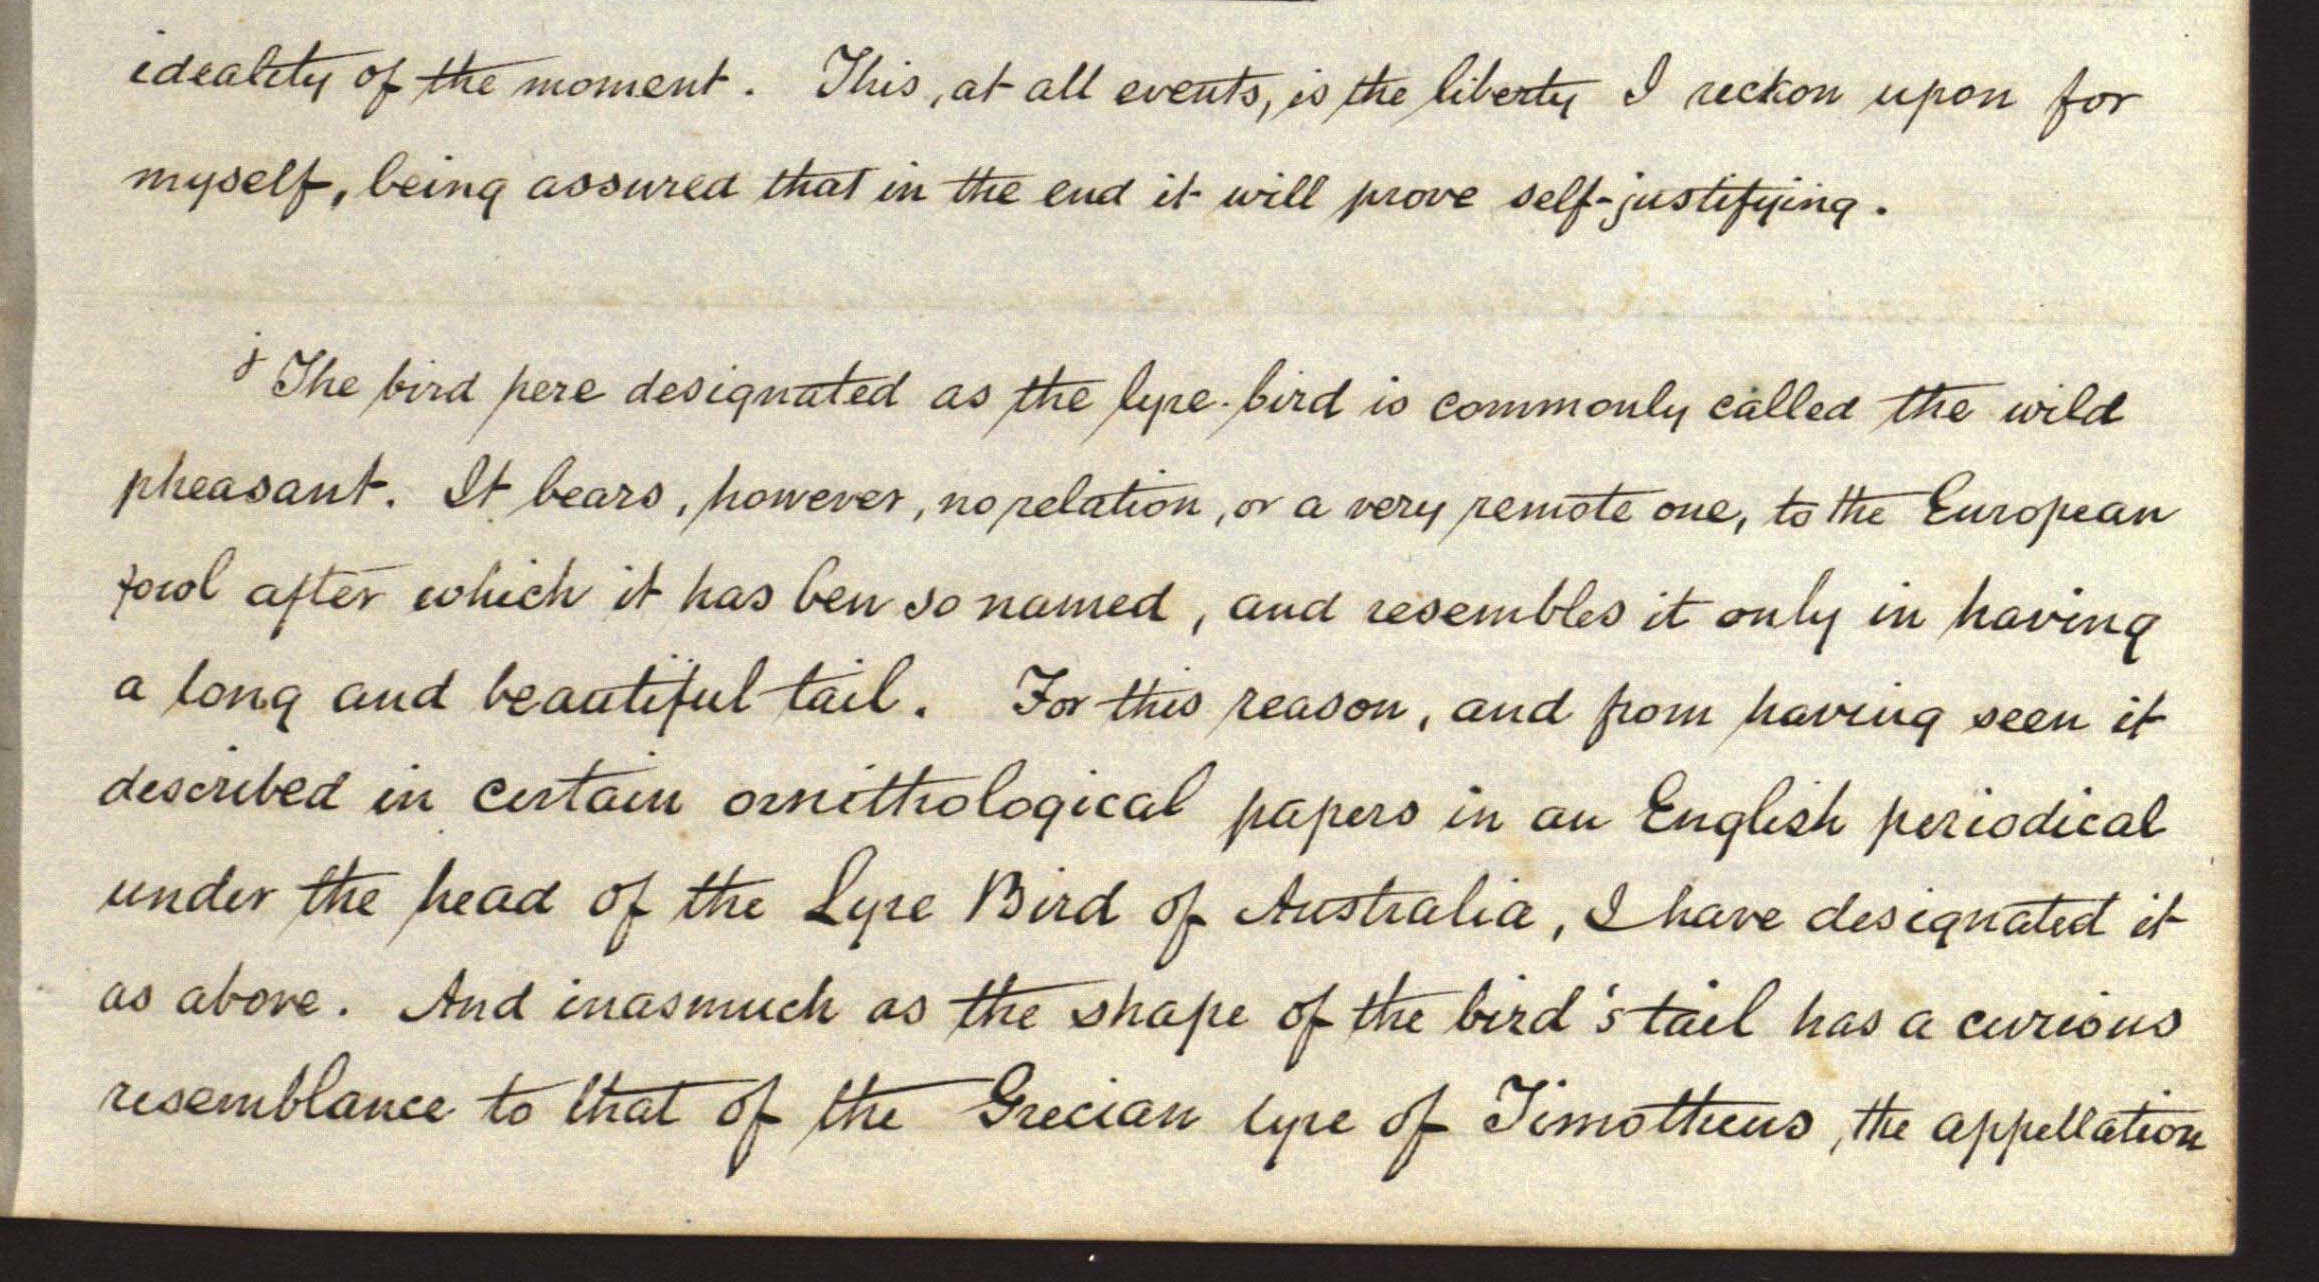 ideality of the moment. This, at all events, is the liberty I reckon upon for
myself, being assured that in the end it will prove self-justifying.
j The bird here designated as the lyre-bird is commonly called the wild
pheasant. It bears, however, no relation, or a very remote one, to the European
fowl after which it has ben so named, and resembles it only in having
a long and beautiful tail. For this reason, and from having seen it
described in certain ornithological papers in an English periodical
under the head of the Lyre Bird of Australia, I have designated it
as above. And inasmuch as the shape of the bird's tail has a curious
resemblance to that of the Grecian lyre of Timotheus, the appellation